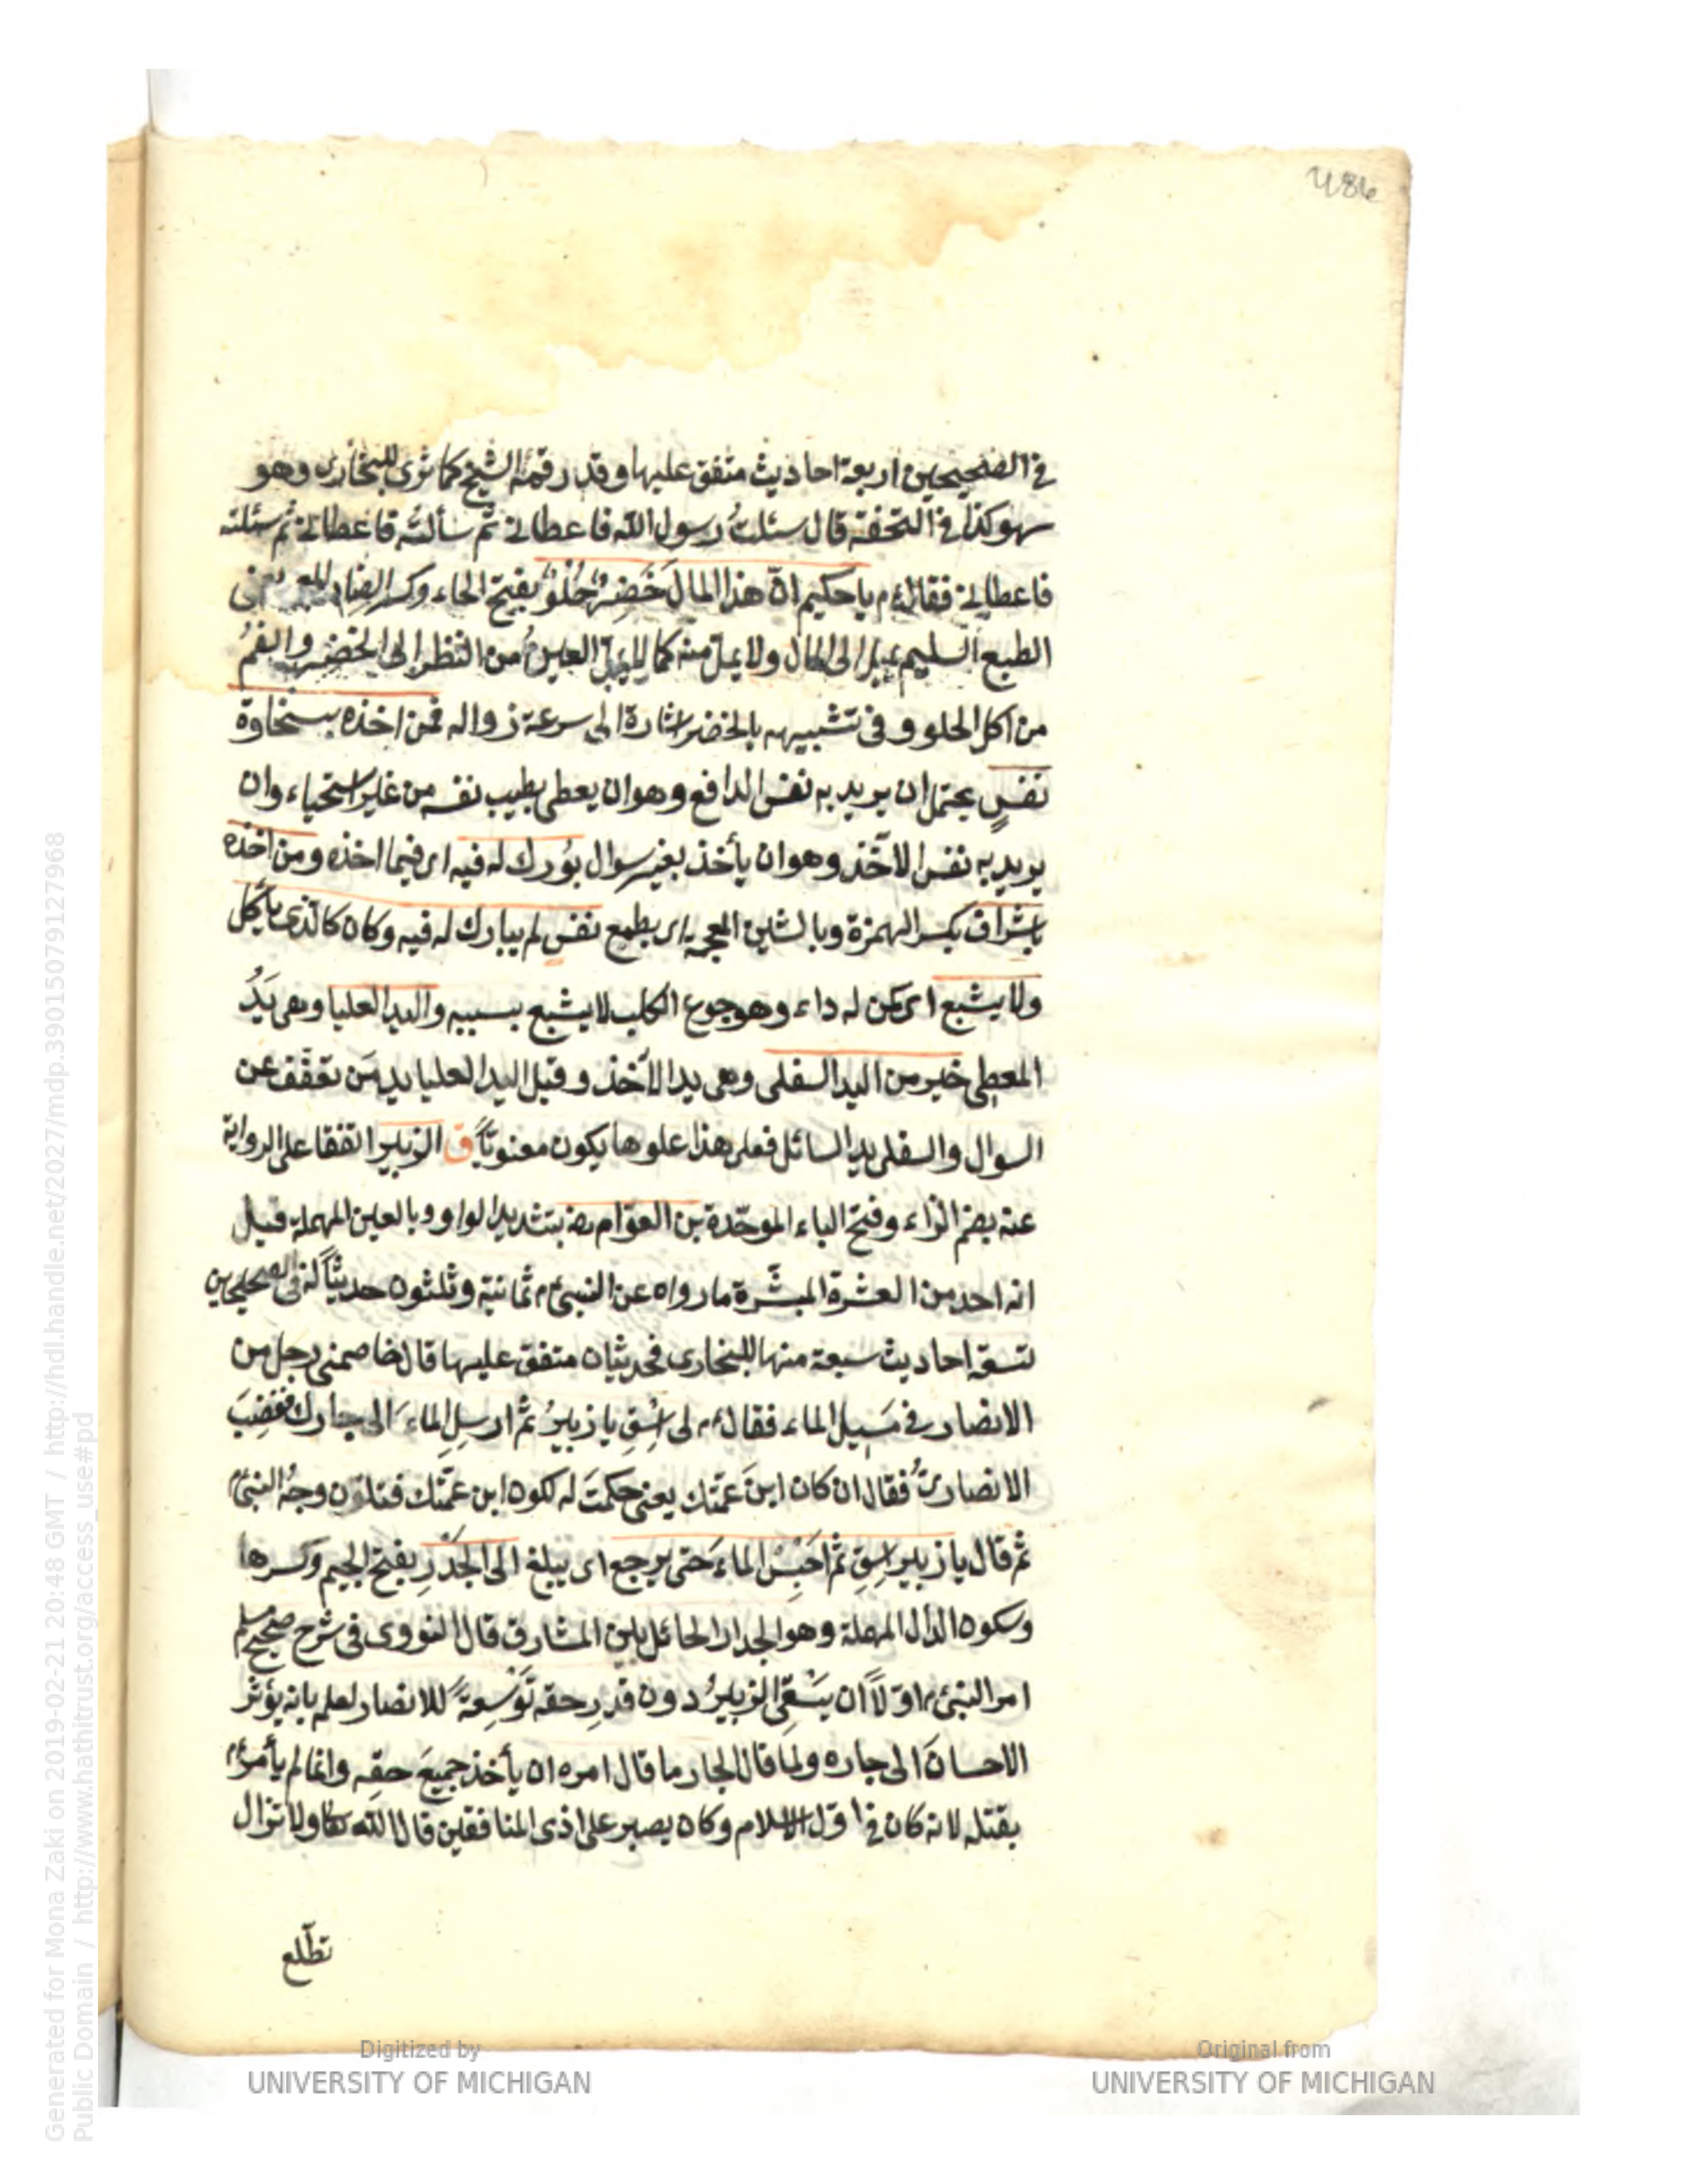 486
في الصحيحين اربعة احاديث متفق عليها وقد رقمه الشيخ كما ترى للبخارى وهو
سهو كذا في التحفة قال سئلتُ رسول الله فاعطاني ثم سألتُه فاعطاني ثم سئلته
فاعطاني فقال ءم يا حكيم انّ هذا المال خَضِرٌ حُلْوٌ بفتح الخاء وكسر الضاد يعنى
الطبع السليم يميل الى المال ولا يملّ منه كما لا يملّ العينُ من النظر الى الخضِر والفمُ
من اكل الحلو وفى تشبيهه بالخضر اشارة الى سرعة زواله فمن اخذه بسخاوة
نفسٍ يحتمل ان يريد به نفس الدافع وهو ان يعطى بطيب نفسه من غير استحياء وان
يريد به نفس الآخذ وهو ان يأخذ بغير سوال بُورك له فيه اى فيما اخذه ومن اخذه
باشراف بكسر الهمزة وبالشين المعجمة اى بطمع نفسٍ لم يبارك له فيه وكان كالذى يأكل
ولا يشبع اى كمن له داء وهو جوع الكلب لا يشبع بسببه واليد العليا وهى يَدُ
المعطى خير من اليد السفلى وهى يد الآخذ وقيل اليد العليا يد من تعفّف عن
السوال والسفلى يد السائل فعلى هذا علوها يكون معنويّاً ق الزبير اتفقا على الرواية
عنه بضم الزاء وفتح الباء الموحّدة بن العوّام رضه بتشديد الواو وبالعين المهملة قيل
انه احد من العشرة المبشّرة ما رواه عن النبىّ م ثمانية وثلثون حديثاً له فى الصحيحين
تسعة احاديث سبعة منها للبخارى فحديثان متفق عليها قال خاصمنى رجل من
الانصار في مَسِيل الماء فقال ءم لى اسْقِ يا زبيرُ ثم ارسلِ الماءَ الى جارك فغضِبَ
الانصارىّ فقال ان كان ابنَ عمّتك يعنى حكمتَ له لكونه ابن عمّتك فتلوّن وجهُ النبىّ م
ثم قال يا زبير اسقِ ثم احْبِسْ الماءَ حتى يرجع اى يبلغ الى الجَدْرِ بفتح الجيم وكسرها
وسكون الدال المهملة وهو الجدار الحائل بين المشارق قال النووى فى شرح صحيح مسلم
امر النبىّ م اوّلاً ان يسْقِى الزبيرُ دون قدرِ حقه تَوْسِعةً للانصار لعلمه بانه يؤثر
الاحسانَ الى جاره ولما قال الجار ما قال امره ان يأخذ جميعَ حقِه وانما لم يأمر ءم
بقتله لانه كان في اوّل الاسلام وكان يصبر على اذى المنافقين قال الله تعا ولا تزال
تطّلع
Generated for Mona Zaki on 2019-02-21 20:48 GMT / http://hdl.handle.net/2027/mdp.39015079127968
Public Domain / http://www.hathitrust.org/access_use#pd
Digitized by
UNIVERSITY OF MICHIGAN
Original from
UNIVERSITY OF MICHIGAN